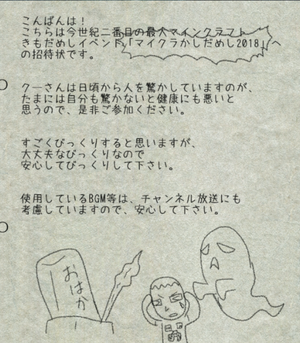 こんばんは！
こちらは今世紀二番目の最大マインクラフト
きもだめしイベント「マイクラかしだめし2018」
の招待状です。
クーさんは日頃から人を驚かしていますのが、
たまには自分も驚かないと健康にも悪いと
思うので、是非ご参加ください。
すごくびっくりすると思いますが、
大丈夫なびっくりなので
安心してびっくりして下さい。
使用しているBGM等は、チャンネル放送にも
考慮していますので、安心して下さい。
おはか